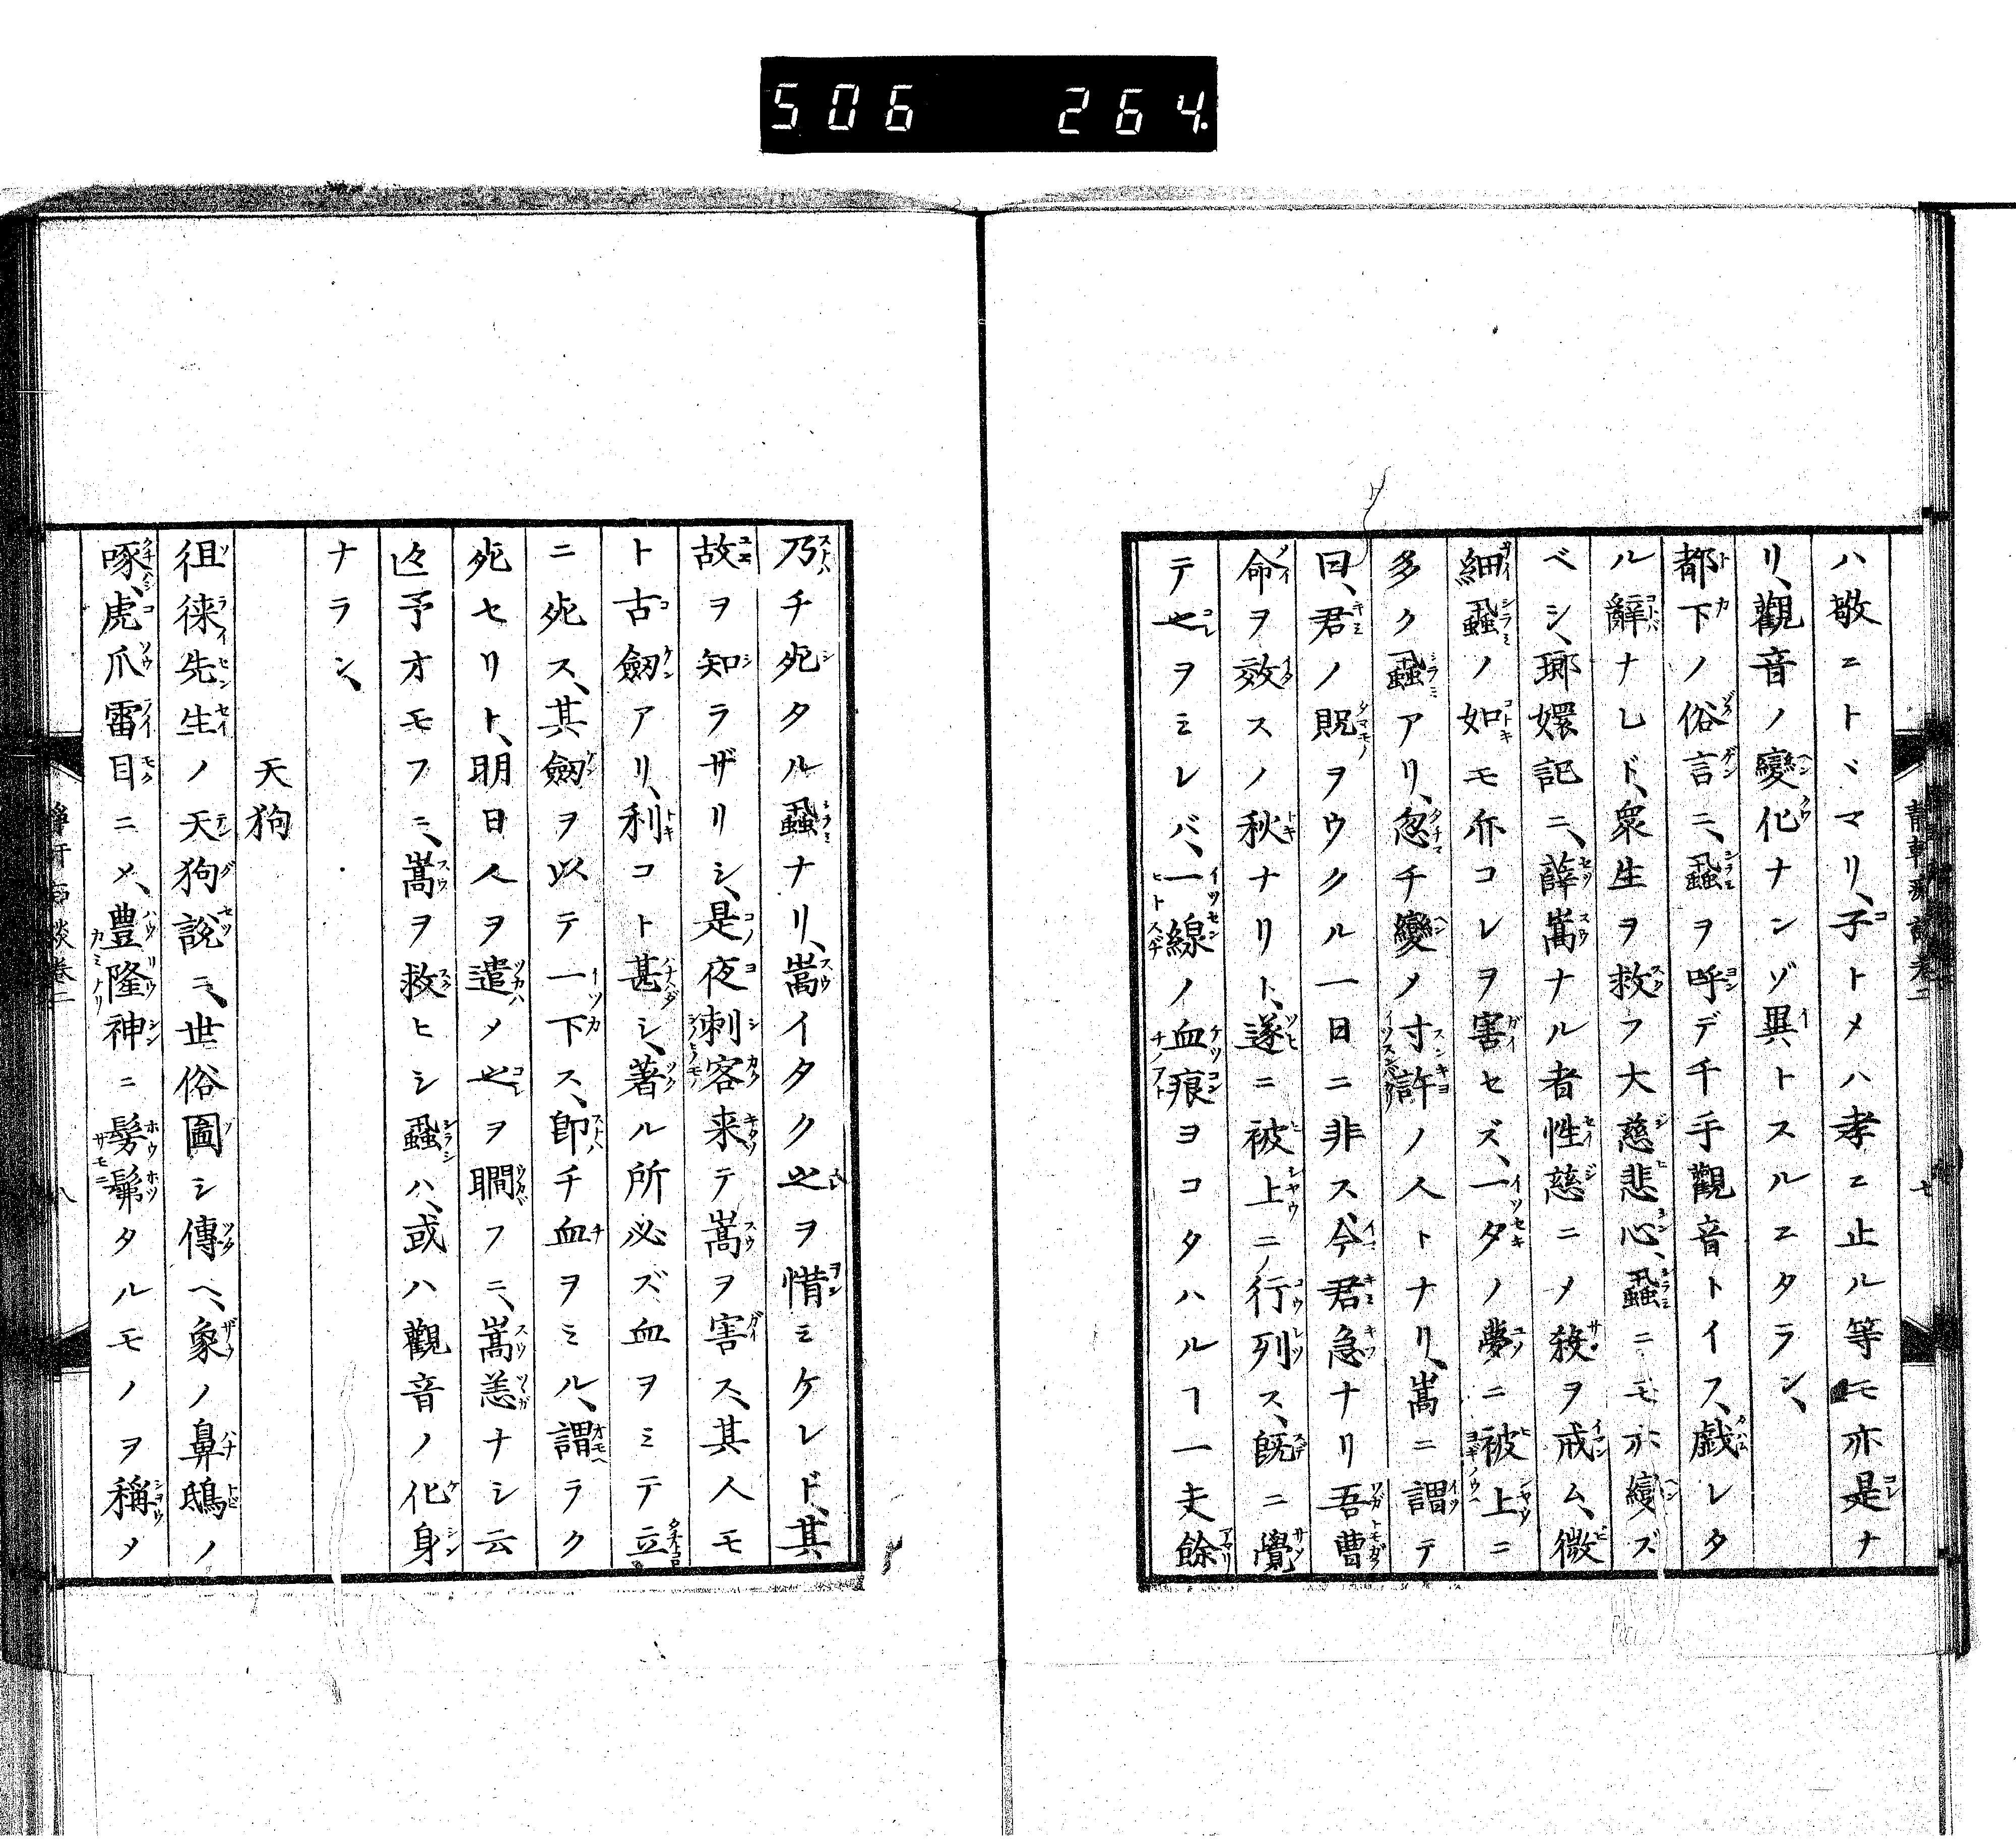 506 264.
ハ敬ニトヾマリ、子トメハ孝ニ止ル等モ亦是ナ
リ、觀音ノ變化ナンゾ異トスルニタラン、
都下ノ俗言ニ、蝨ヲ呼デ千手觀音トイフ、戯レタ
ル辭ナレド、衆生ヲ救フ大慈悲心、蝨ニモ亦變ズ
ベシ、瑯嬛記ニ、薛嵩ナル者性慈ニメ殺ヲ戒ム、微
細蝨ノ如モ亦コレヲ害セズ、一夕ノ夢ニ被上ニ
多ク蝨アリ、忽チ變ノ寸許ノ人トナリ、嵩ニ謂テ
曰、君ノ貺ヲウクル一日ニ非ス、今君急ナリ吾曹
命ヲ效スノ秋ナリト、遂ニ被上ニ行列ス、既ニ覺
テ之ヲミレバ、一線ノ血痕ヨコタハルヿ一丈餘
乃チ死タル蝨ナリ、嵩イタク之ヲ惜ミケレド、其
故ヲ知ラザリシ、是夜刺客来テ嵩ヲ害ス、其人モ
ト古劔アリ、利コト甚シ、著ル所必ズ血ヲミテ立
ニ死ス、其劔ヲ以テ一下ス、即チ血ヲミル、謂ラク
死セリト、明日人ヲ遣メ之ヲ瞯フニ、嵩恙ナシ云
〻予オモフニ、嵩ヲ救ヒシ蝨ハ、或ハ觀音ノ化身
ナラン、
天狗
徂徠先生ノ天狗說ニ、世俗圖シ傳ヘ、象ノ鼻鴟ノ
啄、虎爪雷目ニメ、豊隆神ニ髣髴タルモノヲ稱メ
八